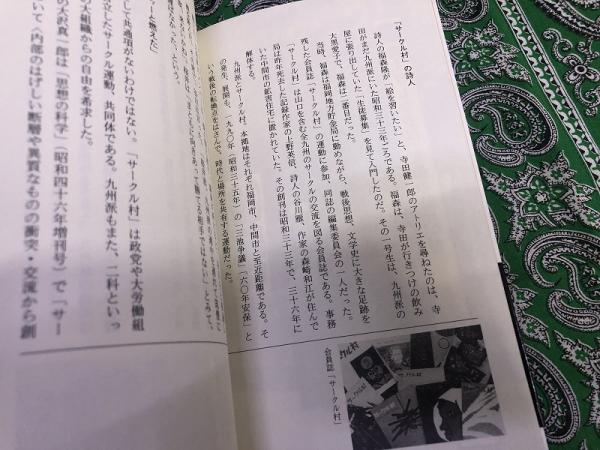 「サークル村」の詩人
詩人の福森隆が「絵を習いたい」と、寺田健一郎のアトリエを尋ねたのは、寺
田がまだ九州派にいた昭和三十三年ごろである。福森は、寺田が行きつけの飲み
屋に張り出していた「生徒募集」を見て入門したのだ。その一号生は、九州派の
大黒愛子で、福森は二番目だった。
当時、福森は福岡地方貯金局に勤めながら、戦後思想、文学史に大きな足跡を
残した会員誌「サークル村」の運動に参加、同誌の編集委員会の一人だった。
「サークル村」は山口を含む全九州のサークルの交流を図る会員誌である。事務
局は昨年死去した記録作家の上野英信、詩人の谷川雁、作家の森崎和江が住んで
いた中間市の鉱害住宅に置かれていた。その創刊は昭和三十三年で、三十六年に
解体する。
九州派とサークル村。本拠地はそれぞれ福岡市、中間市と至近距離である。そ
の発生、展開も、一九九〇年（昭和三十五年）の「三池争議」「六〇年安保」と
いう戦後の転換点をはさんで、時代と場所を共有する運動だった。
会員誌「サークル村」
ーと燃えた」
して共通項がないわけではない。「サークル村」は政党や大労働組
立したサークル運動、共同体である。九州派もまた、二科といっ
の大組織からの自由を希求した。
の大沢真一郎は「思想の科学」（昭和四十六年増刊号）で「サー
いて〈内部のはげしい断層や異質なものの衝突・交流から創